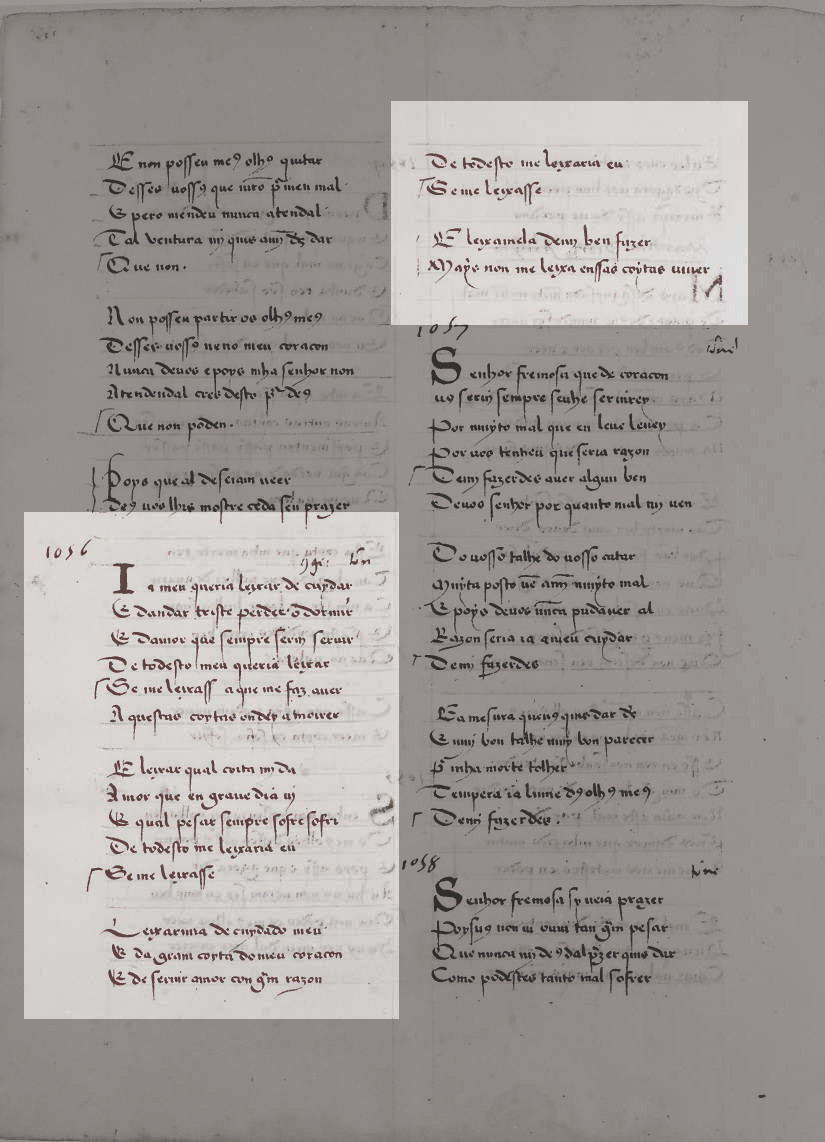 E non posseu me9 olh9 quitar
Desses uoss9 que iuro p̄ meu mal
E pero mendeu nunca atendal
Tal ventura mj quis amj d̄s dar
Que non.
Non posseu partir os olh9 me9
Desses uoss9 neno meu coracon
Nunca deuos epoys mha senhor non
Atendendal cres desto de9
Que non poden.
Poys que al deseiam ueer
de9 uos lhis mostre ceda seu prazer
1056
Ia meu queria leixar de cuydar
E dandar triste perder o dormir
E damor que sempre seruj seruir
De todesto meu queria leixar
Se me leixass a que me faz auer
Aquestas coytas ondey a moirer
E leixar qual coita mj da
Amor que en graue dia uj
E qual pesar sempre sofre sofri
De todesto me leixaria eu
Se me leixasse
Leixarmia de cuydado meu
E da gram coyta do meu coracon
E de seruir amor con gm̄ razon
De todesto me leixaria eu
Se me leixasse
E leixamela demj ben fazer
Mays non me leixa enssas coytas uiuer
1057
Senhor fremosa que de coracon
uos seruj sempre seuhe seruirey
Por muyto mal que en leue leuey
Por uos tenheu que seria razon
Demj fazerdes auer algun ben
Deuos senhor por quanto mal mj uen
Do uosso talhe do uosso catar
Muyta posto ue amj muyto mal
E poys deuos nūca pudauer al
Razon seria ia a meu cuydar
Demj fazerdes
Ea mesura queu9 quis dar de9
E muj bon talhe muy bon parecer
p̄ mha morte tolher
Tempera ia lume d9 olh9 me9
Demj fazerdes.
1058
Senhor fremosa sy ueia prazer
Poysu9 non ui ouui tan gm̄ pesar
Que nunca mj de9 dal p̄zer quis dar
Como podestes tanto mal sofrer